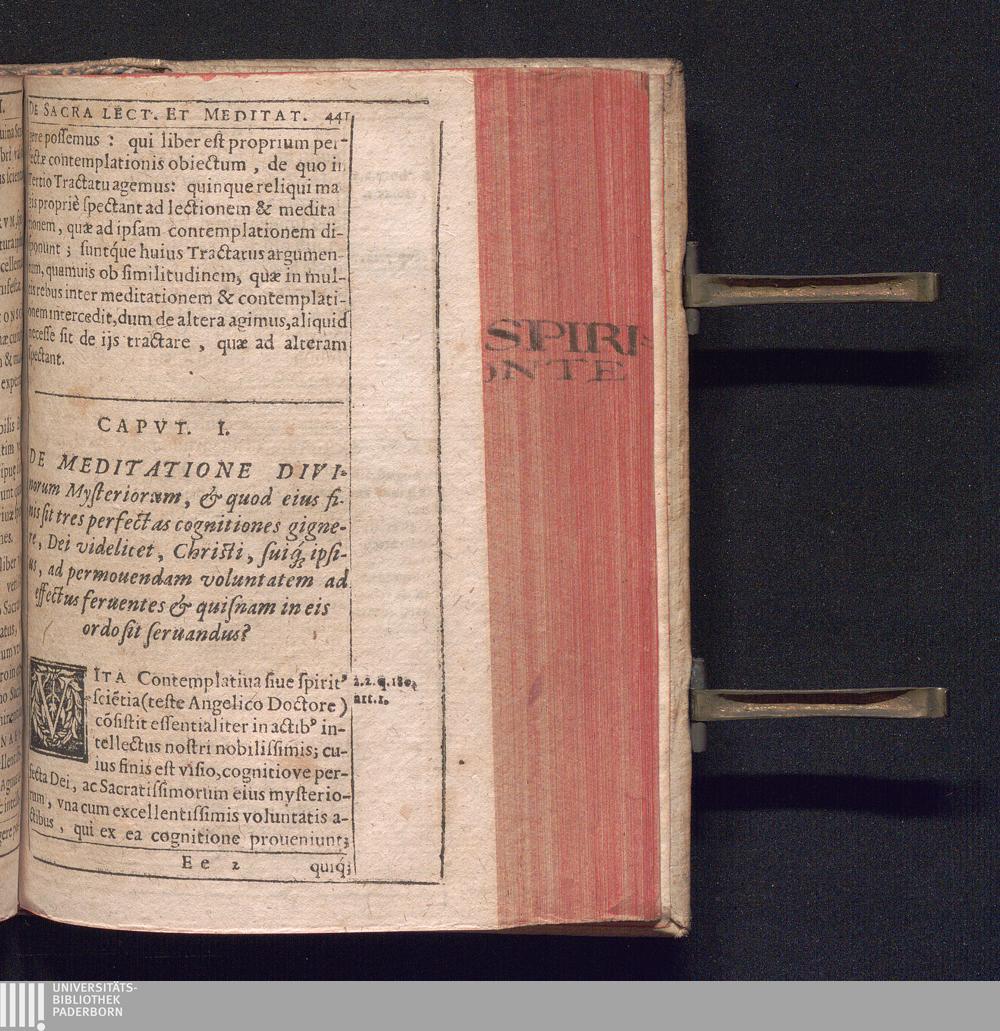 DE SACRA LECT. ET MEDITAT. 441
possemus : qui liber est proprium per-
contemplationis obiectum , de quo in
Tertio Tractatu agemus: quinque reliqui ma
propriè spectant ad lectionem & medita
quæ ad ipsam contemplationem di-
; suntq́ue huius Tractatus argumen-
quamuis ob similitudinem, quæ in mul-
rebus inter meditationem & contemplati-
onem intercedit, dum de altera agimus, aliquid
necesse sit de ijs tractare , quæ ad alteram
spectant.
CAPVT. I.
DE MEDITATIONE DIVI-
norum Mysteriorum, & quod eius fi-
nis sit tres perfectas cognitiones gigne-
re, Dei videlicet, Christi, suiq́; ipsi-
us, ad permouendam voluntatem ad
effectus feruentes & quisnam in eis
ordo sit seruandus?
VITA Contemplatiua siue spirit⁹
sciẽtia (teste Angelico Doctore)
cõsistit essentialiter in actib⁹ in-
tellectus nostri nobilissimis; cu-
ius finis est visio, cognitiove per-
fecta Dei, ac Sacratissimorum eius mysterio-
rum, vna cum excellentissimis voluntatis a-
ctibus, qui ex ea cognitione proueniunt;
Ee 2
quiq́;
2.2. q. 180.
art. 1.
SPIRI
ONTE
UNIVERSITÄTS-
BIBLIOTHEK
PADERBORN